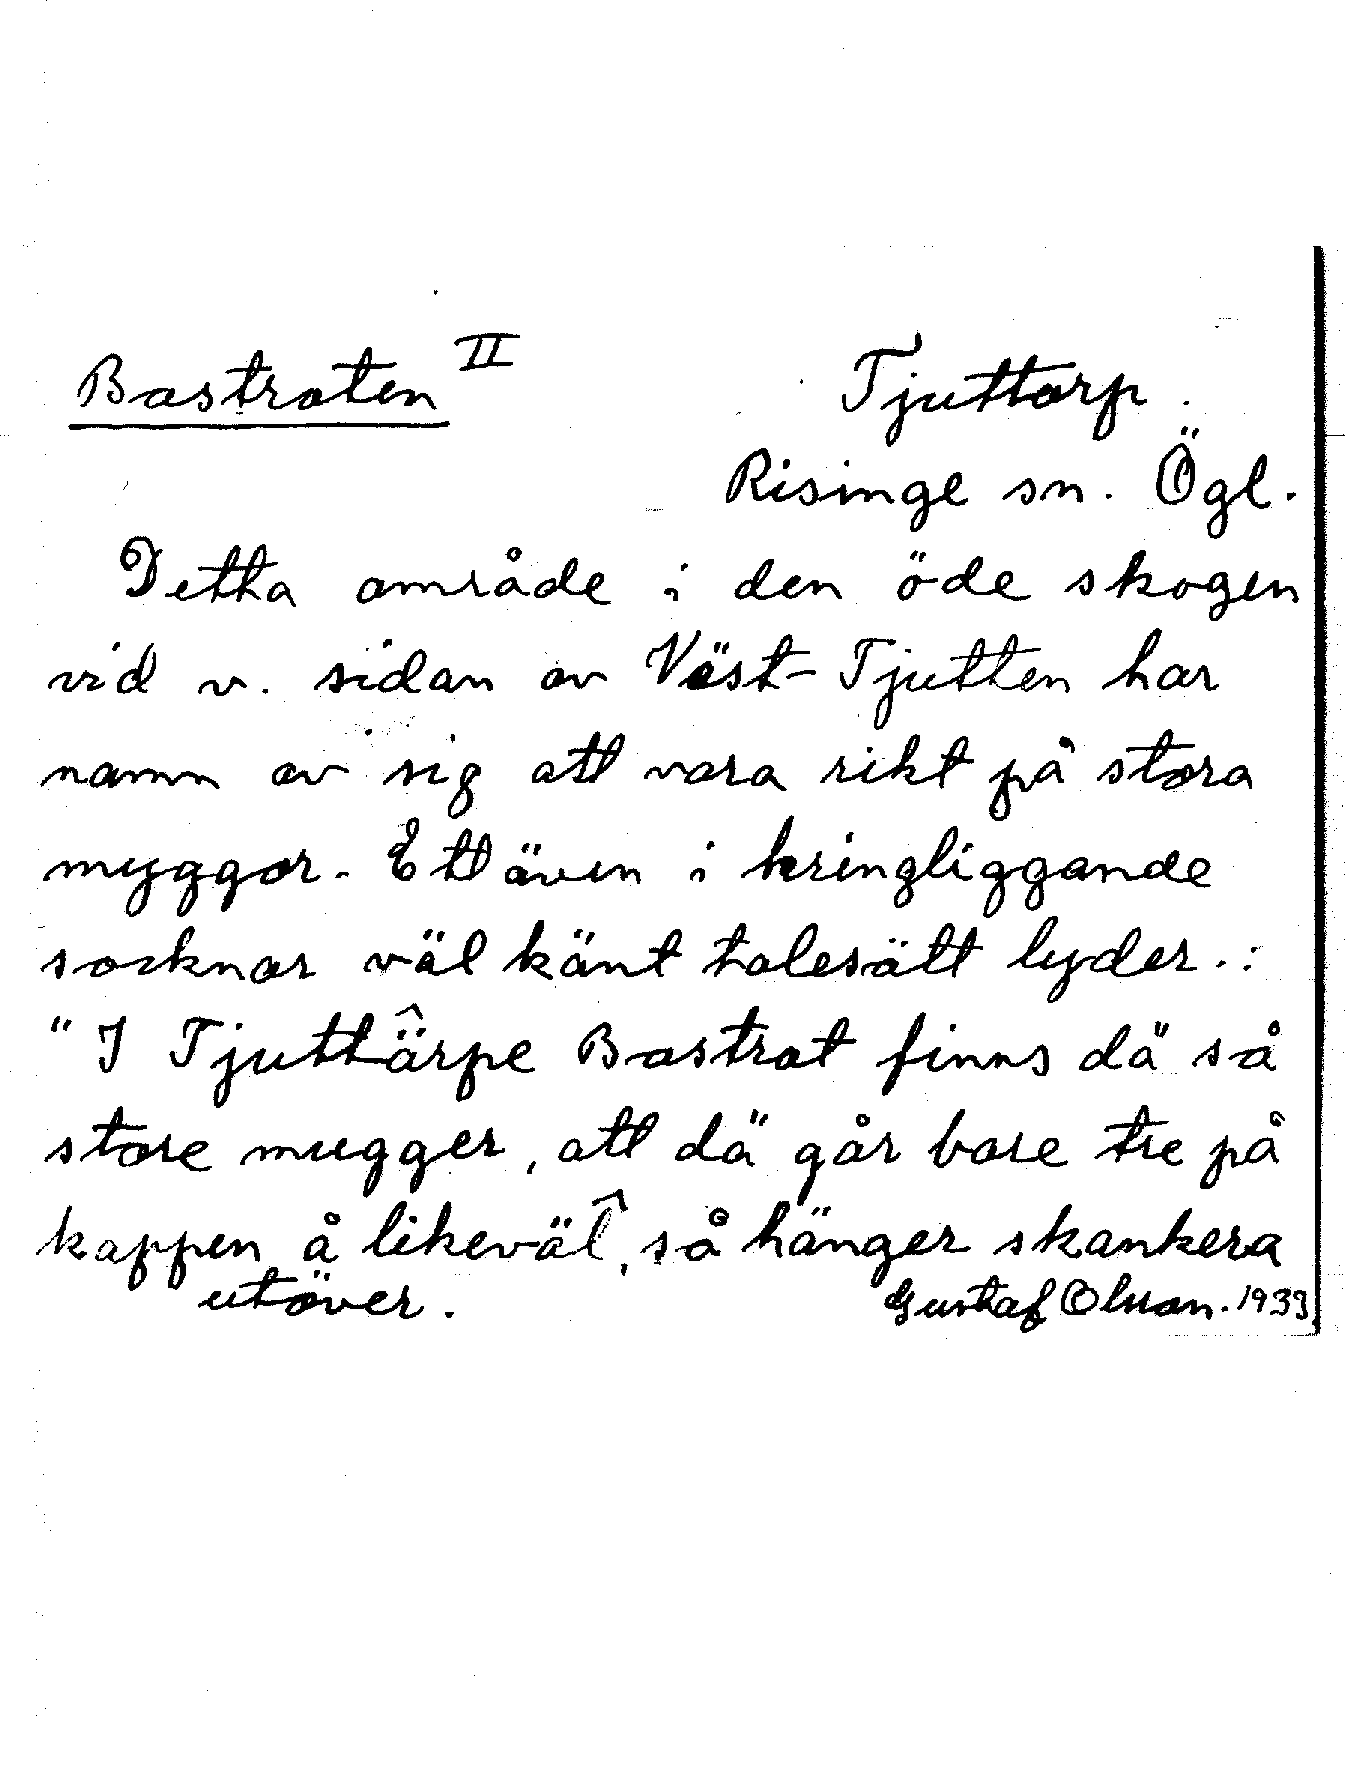 Bastraten II
Tjuttorp.
Risinge sn. Ögl.
Detta område i den öde skogen
vid v. sidan av Väst-Tjutten har
namn av sig att vara rikt på stora
myggor. Ett även i kringliggande
socknar väl känt talesätt lyder.:
"I Tjuttärpe Bastrat finns dä så
store mugger, att dä går bare tre på
kappen å likeväl, så hänger skankera
utöver.
Gustaf Olsson. 1933